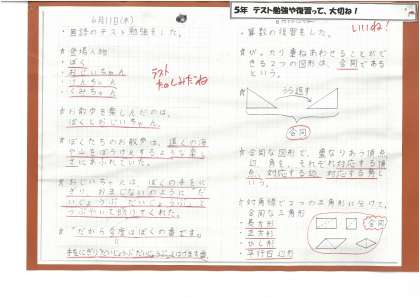 5年 テスト勉強や復習って、大切ね!
6月11日(木)
・国語のテスト勉強をした。
☆登場人物
・ぼく
・おじいちゃん
・けんちゃん
・くみちゃん
テスト
たのしみだね
☆お散歩を楽しんだのは、
ぼくとおじいちゃん。
☆ぼくたちのお散歩は、遠くの海
や山をぼうけんするような楽し
さにあふれていた。
☆おじいちゃんは、ぼくの手をに
ぎり、おまじないのように「だ
いじょうぶ、だいじょうぶ。」と
つぶやいて助けてくれた。
☆"だから今度はぼくの番です。"
手をにぎりだいじょうぶだいじょうぶとはげます番
いいね!
・算数の復習をした。
☆ぴったり重ねあわせることがで
きる2つの図形は、合同である
という。
☆
うら返す
合同
☆合同な図形で、重なりあう頂点、
辺、角を、それぞれ対応する頂
点、対応する辺、対応する角とい
う。
☆対角線で2つの三角形に分けて、
合同な三角形
・長方形
・正方形
・ひし形
・平行四辺形
合同